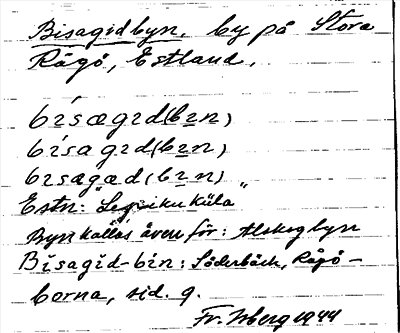 Bisagidbyn, by på Stora
Rågö, Estland.
bísægɪd(bɪn)
bísagɪd(bɪn)
bɪsagæd(bɪn)
Estn: "Lepiku küla"
Byn kallas även för: Alskogbyn
Bĭsagĭd-bĭn: Söderbäck, Rågö-
borna, sid. 9.
Fr. Isberg 1944